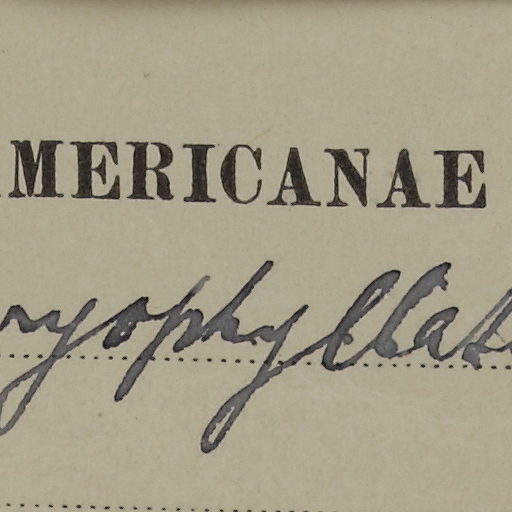 AMERICANAE
ryophyllat